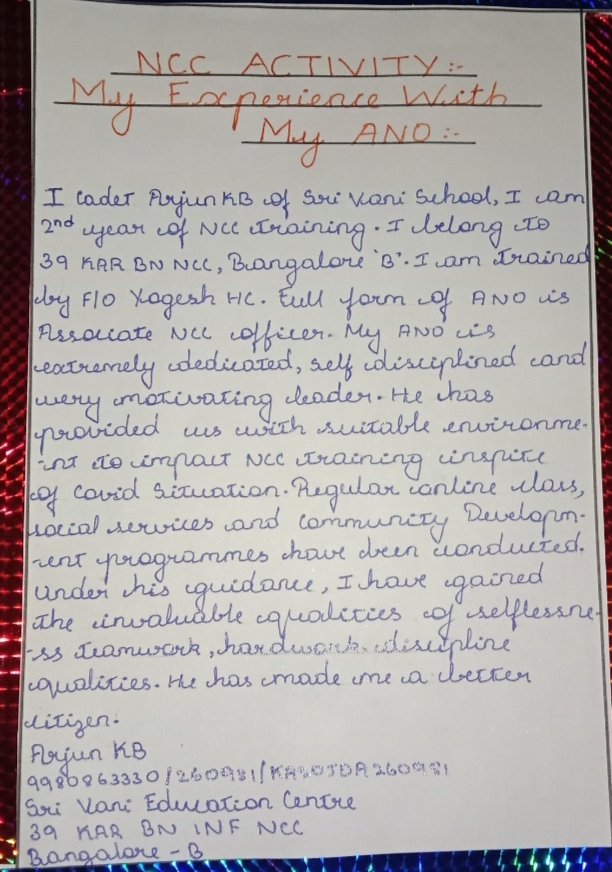 NCC ACTIVITY:-
My Experience With
My ANO:-
I cadet Arjun KB of Sri Vani School, I am
2nd year of NCC training. I belong to
39 KAR BN NCC, Bangalore 'B'. I am trained
by F/O Yogesh HC. Full form of ANO is
Associate NCC officer. My ANO is
extremely dedicated, self disciplined and
very motivating leader. He has
provided us with suitable environme-
-nt to impact NCC training inspite
of Covid Situation. Regular online class,
social services and community Developm-
-ent programmes have been conducted.
Under his guidance, I have gained
the invaluable qualities of selflessne-
-ss teamwork, hardwork, discipline
qualities. He has made me a better
citizen.
Arjun KB
9980863330/260981/
Sri Vani Education Centre
39 KAR BN INF NCC
Bangalore - B